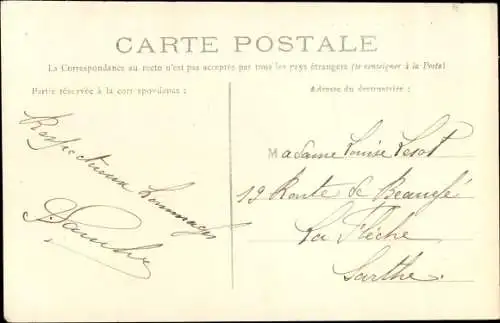 CARTE POSTALE
La Correspondance au recto n'est pas acceptée par tous les pays étrangers (se renseigner à la Poste)
Partie réservée à la correspondance :
Adresse du destinataire :
Respectueux hommages
Madame Louise
19 Route de Beaugé
La Flèche
Sarthe.